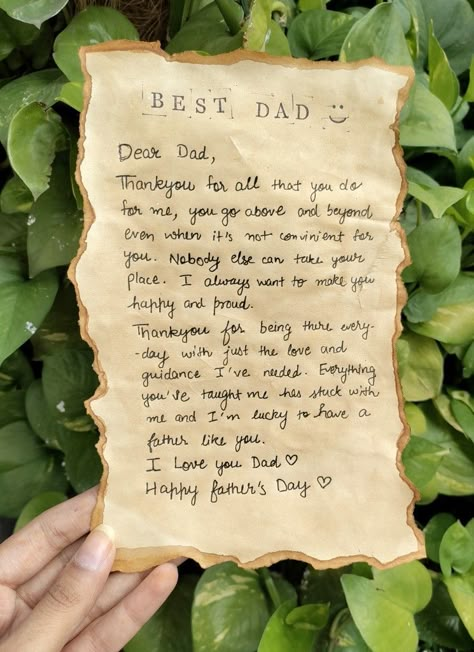 BEST DAD
Dear Dad,
Thankyou for all that you do
for me, you go above and beyond
even when it's not convinient for
you. Nobody else can take your
place. I always want to make you
happy and proud.
Thankyou for being there every-
-day with just the love and
guidance I've needed. Everything
you've taught me has stuck with
me and I'm lucky to have a
father like you.
I Love you Dad ♡
Happy father's Day ♡